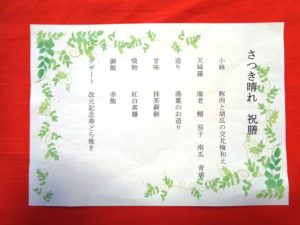 さつき晴れ　祝膳
小鉢　豚肉と胡瓜の立花梅和え
天婦羅　海老　鱚　茄子　南瓜　青唐
造り　湯葉のお造り
甘味　抹茶蕨餅
吸物　紅白素麺
御飯　赤飯
デザート　改元記念寿どら焼き